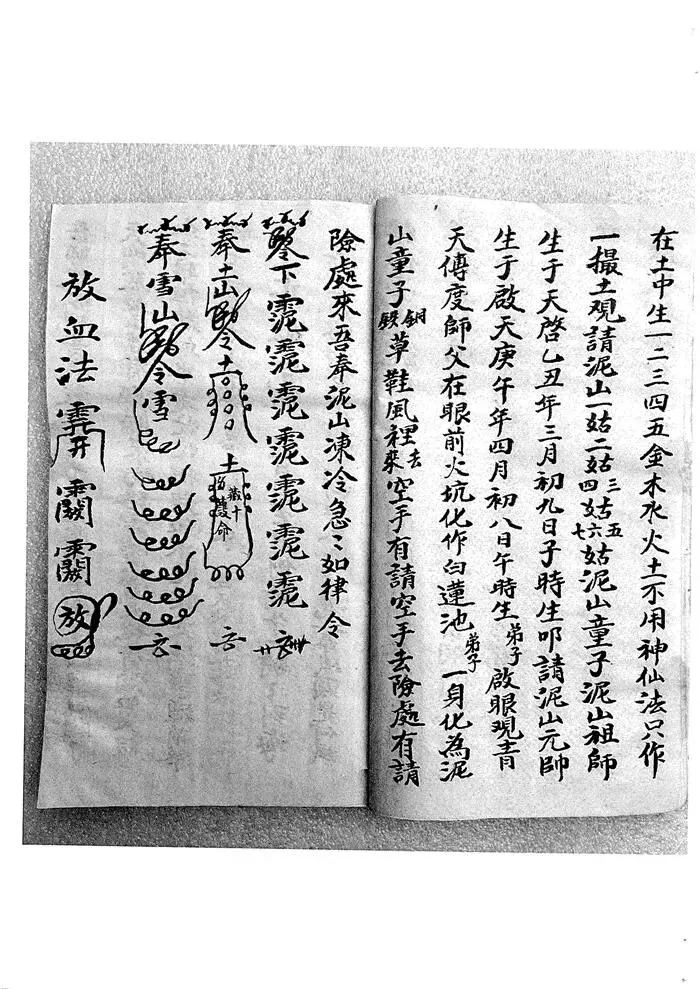 在土中生一二三四五金木水火土不用神仙法只作
一撮土观請泥山一姑二姑三四姑五六七姑泥山童子泥山祖師
生于天啓乙丑年三月初九日子時生叩請泥山元帥
生于啟天庚午年四月初八日午時生弟子啟眼观青
天傅度師父在眼前火坑化作白蓮池弟子一身化為泥
山童子銅鉄草鞋風裡去來空手有請空手去險處有請
險處來吾奉泥山凍冷急〻如律令
下
奉土山令土土藏十命
奉雪山令雪
放血法放